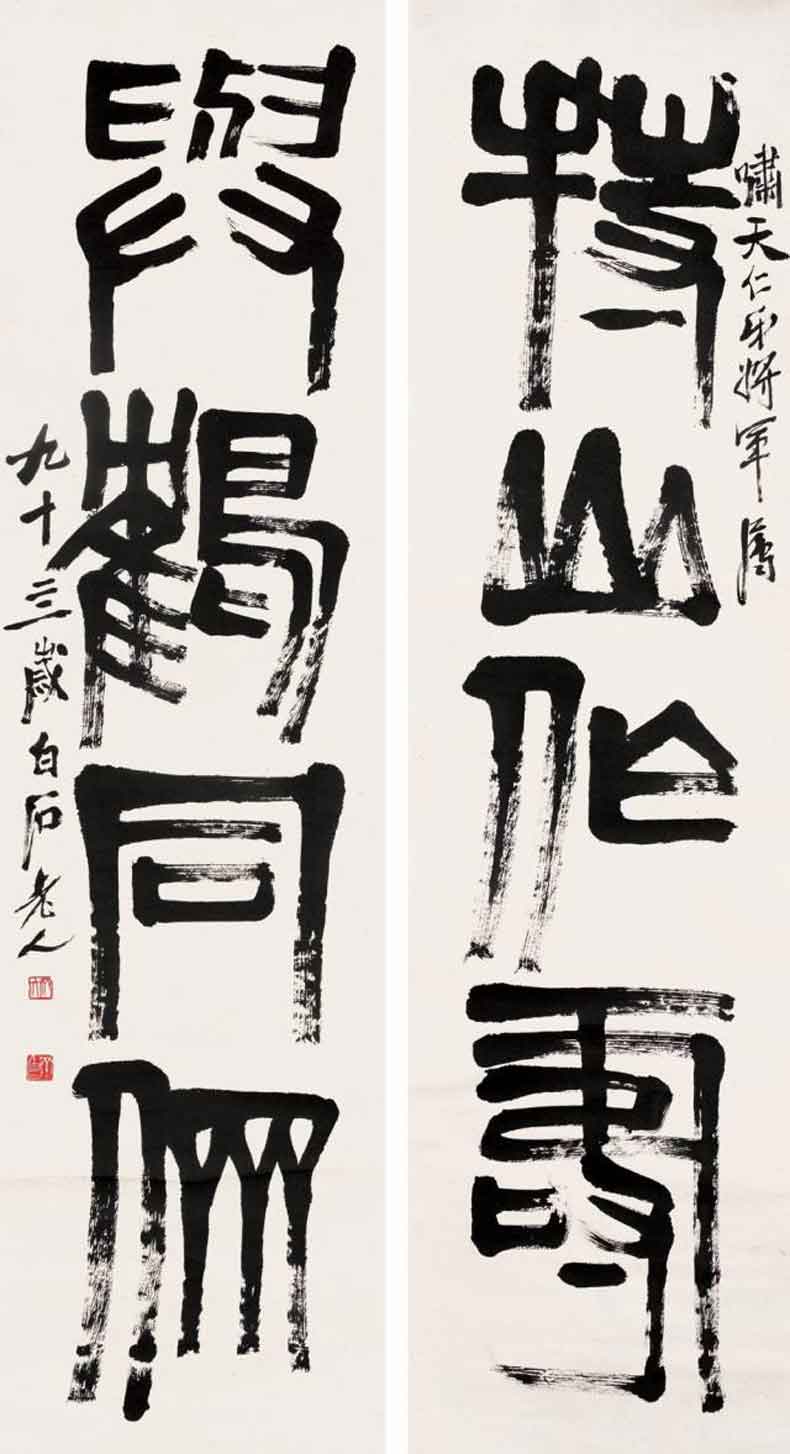 持山作壽
嘯天仁弟將軍
與鶴同儕
九十三歲白石老人